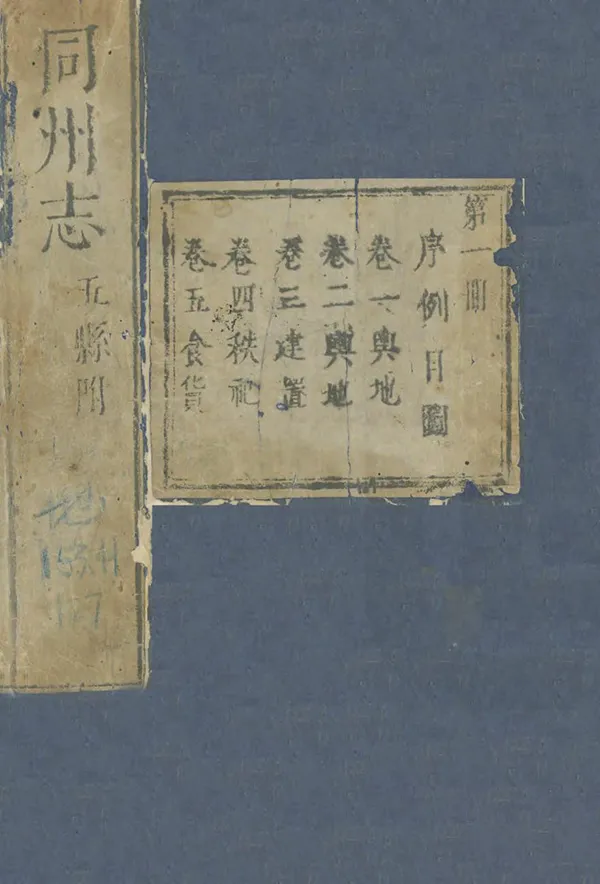 同州志
五縣附
153.41
117
第一冊
序例目圖
卷一輿地
卷二輿地
卷三建置
卷四秩祀
卷五食貨